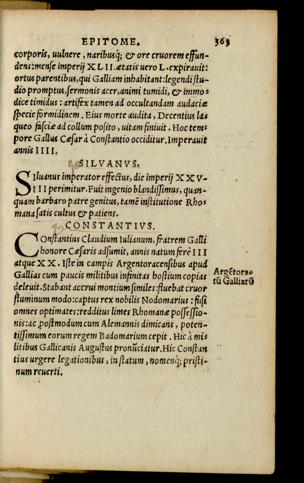 EPITOME. 363
corporis, uulnere, naribusq; & ore cruorem effun-
dens: mense imperij XLII. ætatis uero L. expirauit:
ortus parentibus, qui Galliam inhabitant: legendi stu-
dio promptus, sermonis acer, animi tumidi, & immo-
dice timidus: artifex tamen ad occultandam audaciæ
specie formidinem. Eius morte audita, Decentius la-
queo fasciæ ad collum posito, uitam finiuit. Hoc tem-
pore Gallus Cæsar à Constantio occiditur. Imperauit
annis IIII.
SILVANVS.
Siluanus imperator effectus, die imperij XXV-
III perimitur. Fuit ingenio blandissimus, quan-
quam barbaro patre genitus, tamē institutione Rho-
mana satis cultus & patiens.
CONSTANTIVS.
Constantius Claudium Iulianum, fratrem Galli
honore Cæsaris adsumit, annis natum ferè III
atque XX. Iste in campis Argentoracensibus apud
Gallias cum paucis militibus infinitas hostium copias
deleuit. Stabant acerui montium similes: fluebat cruor
fluminum modo: captus rex nobilis Nodomarius: fusi
omnes optimates: redditus limes Rhomanæ possessio-
nis: ac postmodum cum Alemannis dimicans, poten-
tissimum eorum regem Badomarium cepit. Hic à mi-
litibus Gallicanis Augustus pronūciatur. Hic Constan
tius urgere legationibus, in statum, nomenq; pristi-
num reuerti.
Argētora-
tū Galliarū